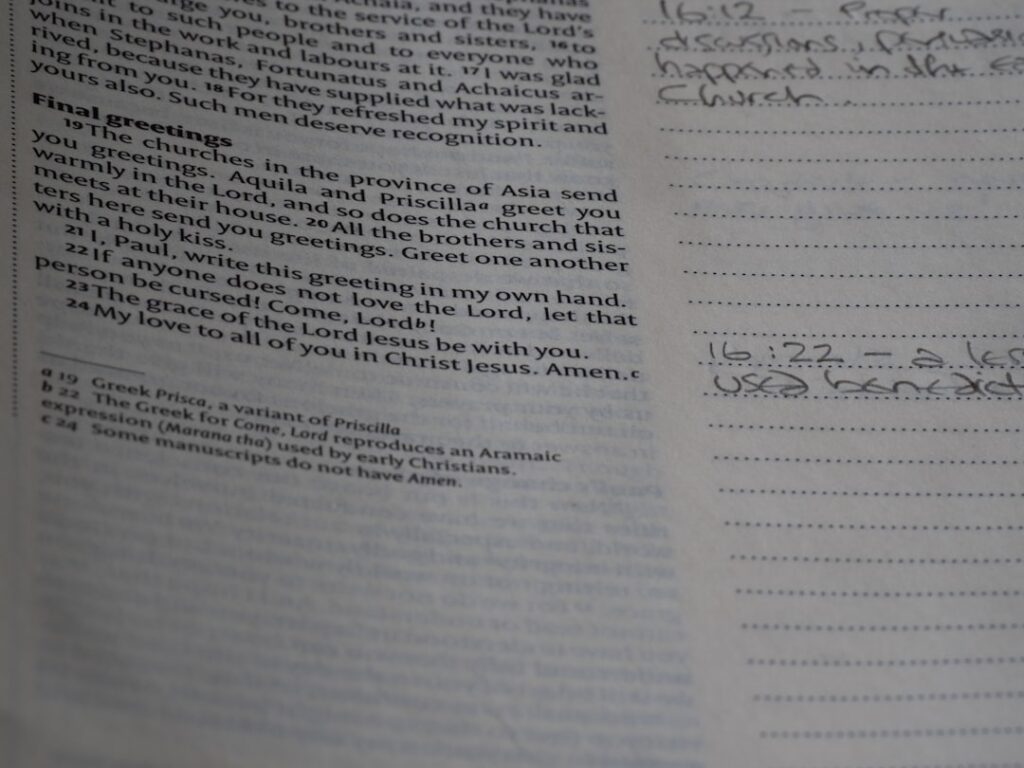 Achaia, and they have
to the service of the Lord's
urge you, brothers and sisters, 16 to
to such people and to everyone who
joins in the work and labours at it. 17 I was glad
when Stephanas, Fortunatus and Achaicus ar-
rived, because they have supplied what was lack-
ing from you. 18 For they refreshed my spirit and
yours also. Such men deserve recognition.
Final greetings
19 The churches in the province of Asia send
you greetings. Aquila and Priscilla a greet you
warmly in the Lord, and so does the church that
meets at their house. 20 All the brothers and sis-
ters here send you greetings. Greet one another
with a holy kiss.
21 I, Paul, write this greeting in my own hand.
22 If anyone does not love the Lord, let that
person be cursed! Come, Lord b!
23 The grace of the Lord Jesus be with you.
24 My love to all of you in Christ Jesus. Amen. c
a 19 Greek Prisca, a variant of Priscilla
b 22 The Greek for Come, Lord reproduces an Aramaic
expression (Marana tha) used by early Christians.
c 24 Some manuscripts do not have Amen.
16:12 – Proper
discussions,
happened in the
Church.
16:22 – a les
used benedict